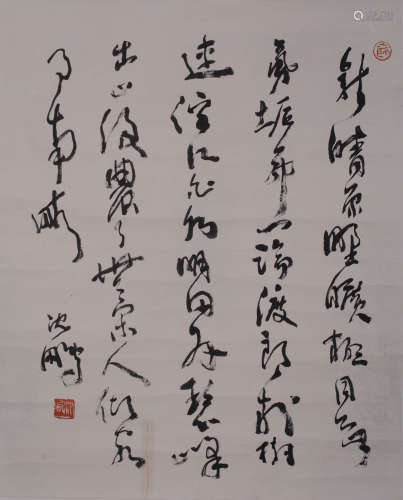 新晴原野曠極目無
氛垢郭門臨渡頭村樹
連溪口白水明田外碧峰
出山後農月無閑人傾家
事南畝
沈鵬